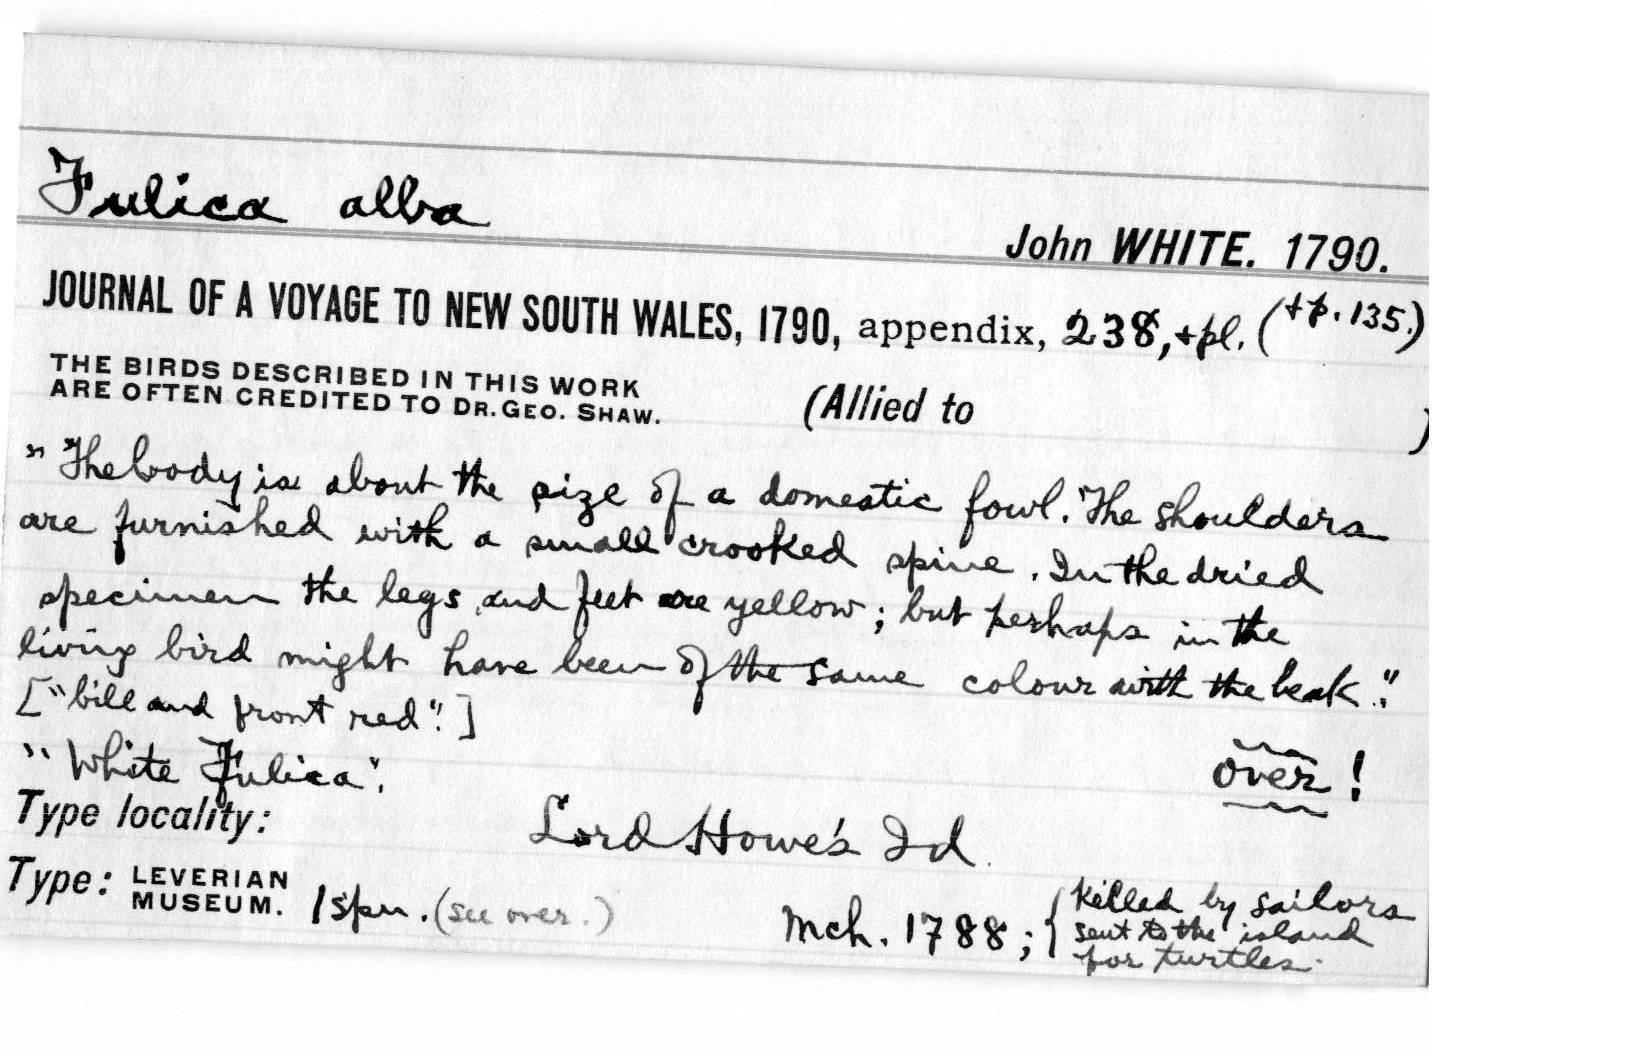 Fulica alba
John WHITE. 1790.
JOURNAL OF A VOYAGE TO NEW SOUTH WALES, 1790, appendix, 238, + pl. (+ p. 135.)
THE BIRDS DESCRIBED IN THIS WORK
ARE OFTEN CREDITED TO DR. GEO. SHAW.
(Allied to )
"The body is about the size of a domestic fowl. The shoulders
are furnished with a small crooked spine. In the dried
specimen the legs and feet are yellow; but perhaps in the
living bird might have been of the same colour with the beak."
["bill and front red".]
"White Fulica".
over!
Type locality: Lord Howe's Id.
Type: LEVERIAN
MUSEUM. 1 spn. (see over.)
Mch. 1788; { killed by sailors
sent to the island
for turtles.